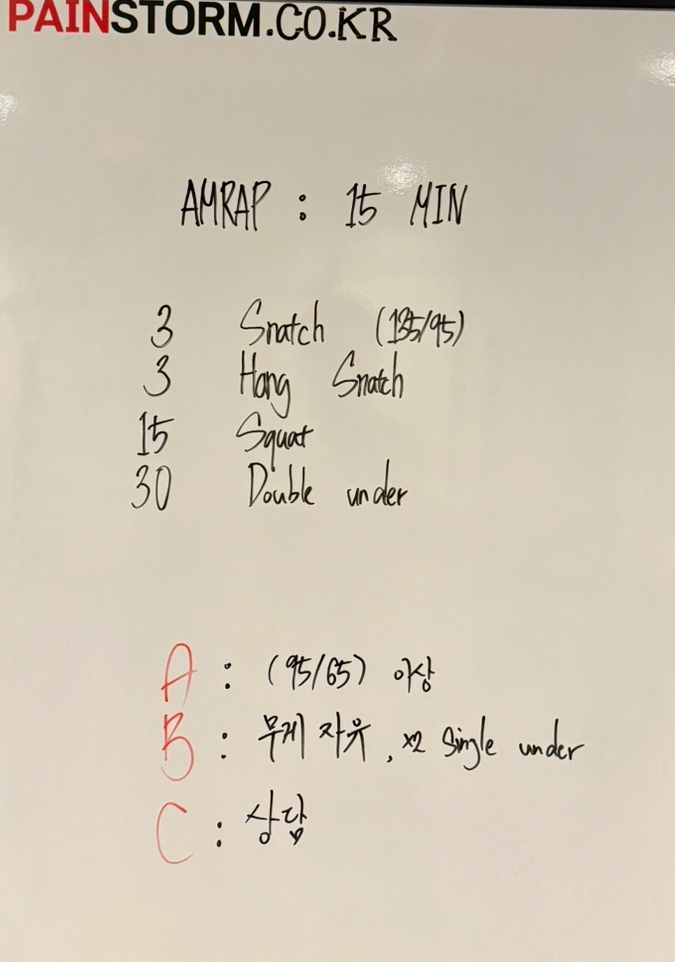 PAINSTORM.CO.KR
AMRAP : 15 MIN
3 Snatch (135/95)
3 Hang Snatch
15 Squat
30 Double under
A : (95/65) 이상
B : 무게 자유, x2 Single under
C : 상담